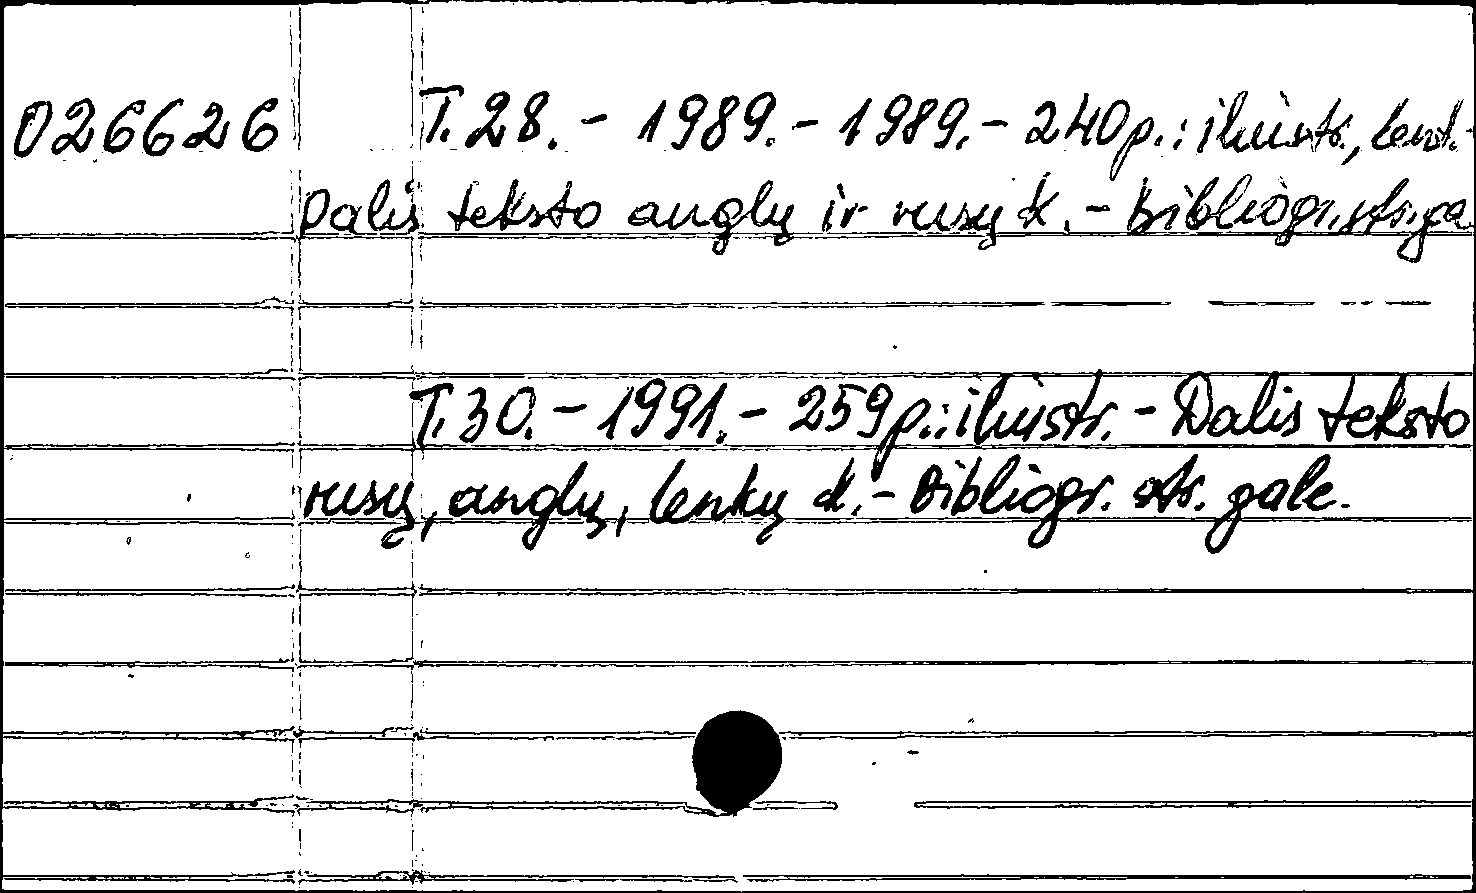 026626 T. 28. - 1989. - 1989. - 240p.: iliustr., lent. -
Dalis teksto anglų ir rusų k. - Bibliogr. str. ga
T. 30. - 1991. - 259p.: iliustr. - Dalis teksto
rusų, anglų, lenkų k. - Bibliogr. str. gale.